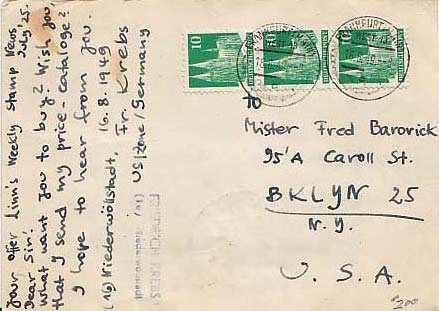 your offer Linn's Weekly Stamp News
July 25.
Dear Sir!
What want you to buy? Wish you,
that I send my price-cataloge?
I hope to hear from you.
16.8.1949
(16) Niederwöllstadt, Fr. Krebs
US/Zone/Germany
FRIEDRICH KREBS
(16) Niederwöllstadt
10
10
FRANKFURT
FRANKFURT
to
Mister Fred Barovick
95'A Caroll St.
BKLYN 25
N.Y.
U.S.A.
200